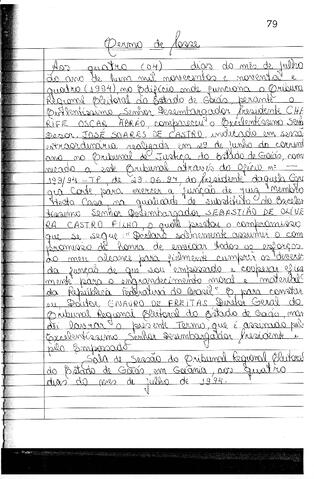 79
Termo de Posse
Aos quatro (04) dias do mês de julho
do ano de hum mil novecentos e noventa e
quatro (1994) no Edifício onde funciona o Tribunal
Regional Eleitoral do Estado de Goiás, perante o
Excelentíssimo Senhor Desembargador Presidente CHA
RIFE OSCAR ABRÃO, compareceu o Excelentíssimo Sem
JOSÉ SOARES DE CASTRO, indicado em sessão
extraordinária realizada em 29 de junho do corrente
ano no Tribunal de Justiça do Estado de Goiás, com
nicado a este Tribunal através do Ofício nº
199/94-TP de 29.06.94 do Presidente daquela Egré
gia Corte para exercer a função de juiz membro
desta Casa na qualidade de substituto do Excelen
tíssimo Senhor Desembargador SEBASTIÃO DE OLIVEI
RA CASTRO FILHO, o qual prestou o compromisso
que se segue: "Declaro solenemente assumir o com
promisso de honra de envidar todos os esforços
ao meu alcance para fielmente cumprir os deveres
da função de que sou empossado e cooperar eficaz
mente para o engrandecimento moral e material
da República Federativa do Brasil". E para constar
eu Doutor ENAURO DE FREITAS Diretor Geral do
Tribunal Regional Eleitoral do Estado de Goiás, man
dei lavrar o presente Termo, que é assinado pelo
Excelentíssimo Senhor Desembargador Presidente e
pelo Empossado.
Sala de Sessão do Tribunal Regional Eleitoral
do Estado de Goiás, em Goiânia, aos quatro
dias do mês de julho de 1994.